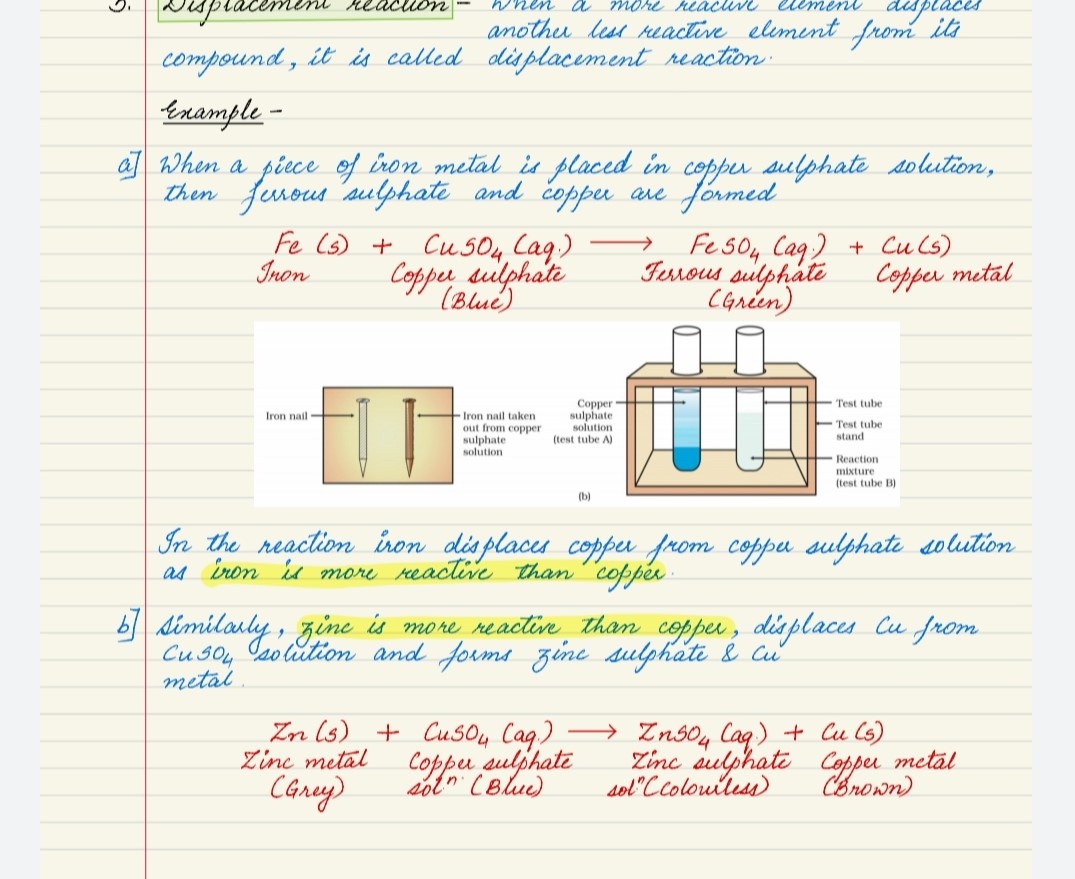 3. Displacement reaction - When a more reactive element displaces
another less reactive element from its
compound, it is called displacement reaction.
Example -
a] When a piece of iron metal is placed in copper sulphate solution,
then ferrous sulphate and copper are formed
Fe (s) + CuSO4 (aq.) ⟶ FeSO4 (aq.) + Cu(s)
Iron Copper sulphate Ferrous sulphate Copper metal
(Blue) (Green)
Iron nail
Iron nail taken
out from copper
sulphate
solution
Copper
sulphate
solution
(test tube A)
Test tube
Test tube
stand
Reaction
mixture
(test tube B)
(b)
In the reaction iron displaces copper from copper sulphate solution
as iron is more reactive than copper.
b] Similarly, zinc is more reactive than copper, displaces Cu from
CuSO4 solution and forms zinc sulphate & Cu
metal.
Zn (s) + CuSO4 (aq.) ⟶ ZnSO4 (aq.) + Cu (s)
Zinc metal Copper sulphate Zinc sulphate Copper metal
(Grey) solⁿ (Blue) solⁿ (colourless) (Brown)